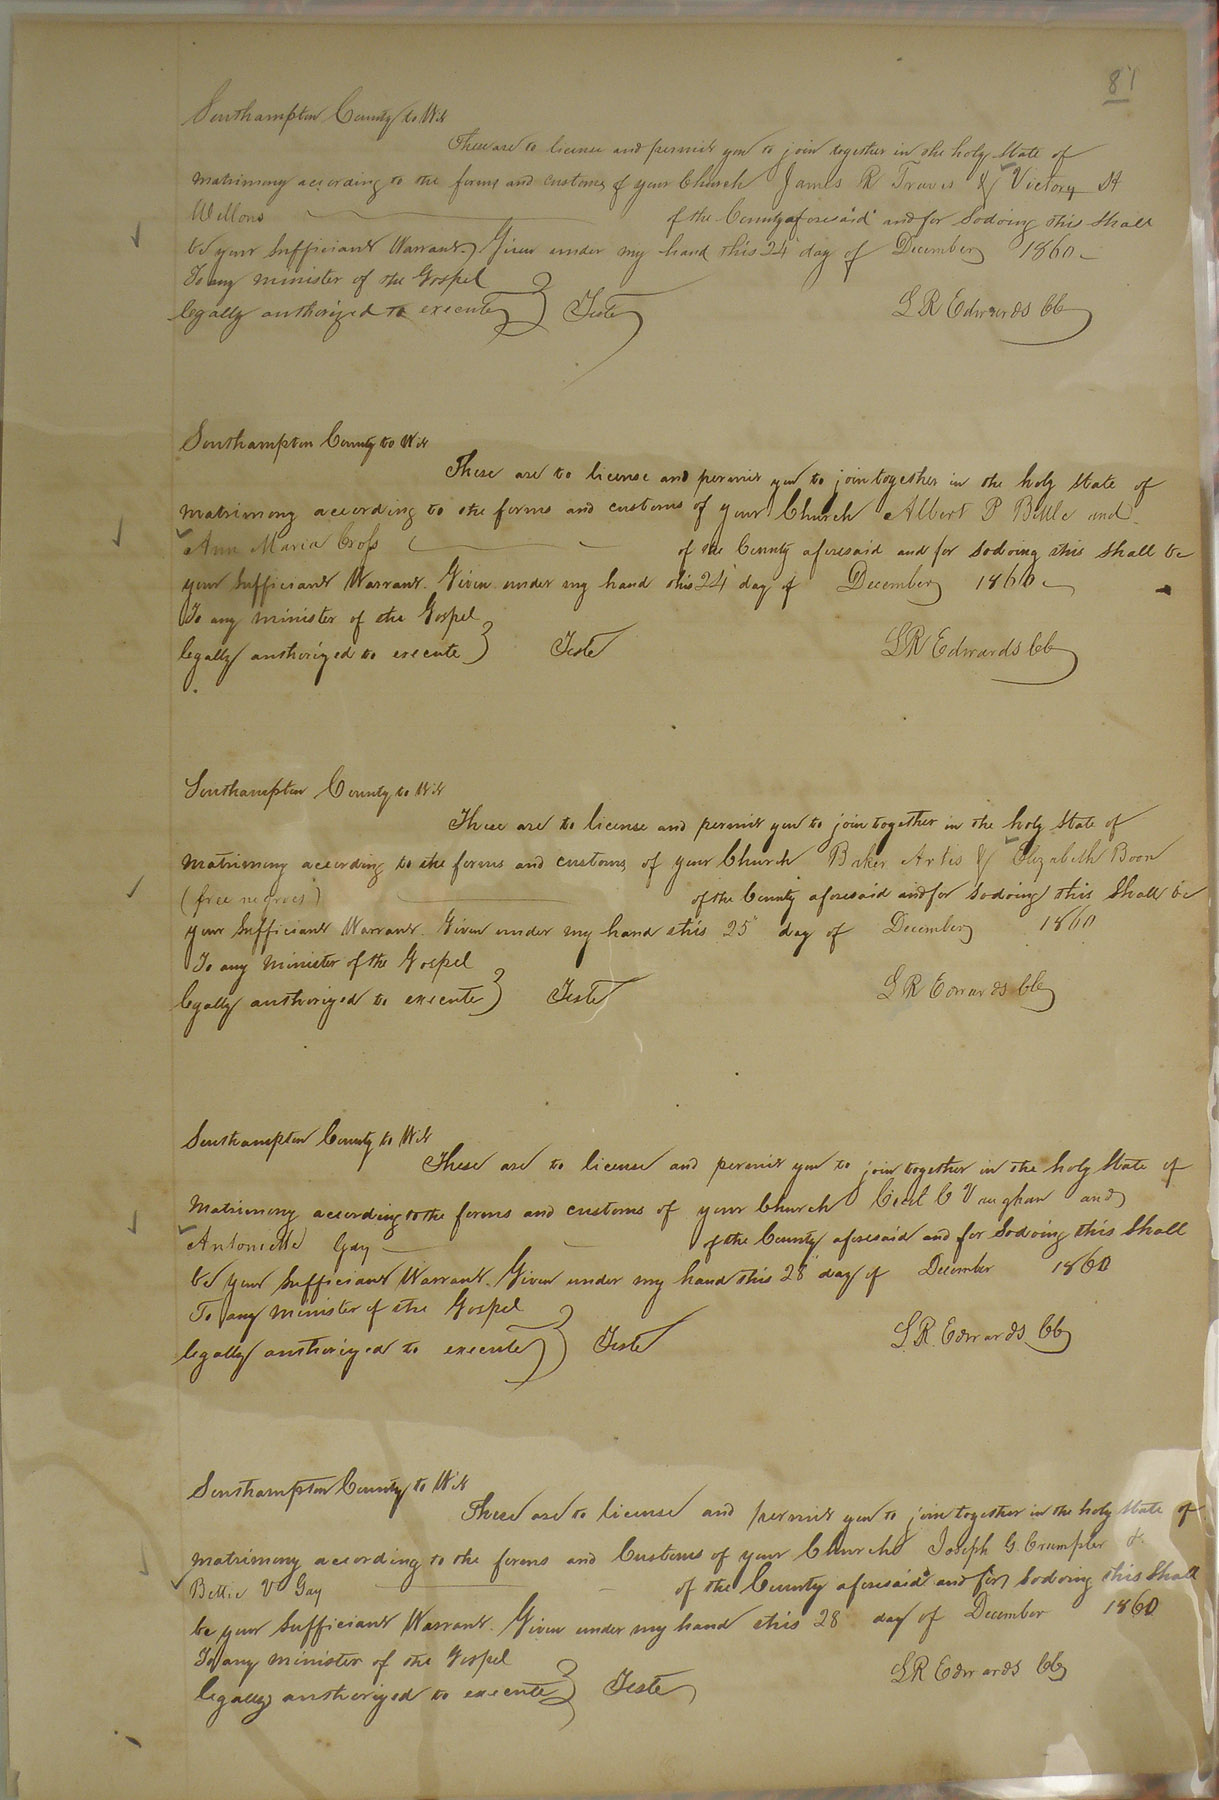 81
Southampton County to Wit
These are to license and permit you to join together in the holy State of
matrimony according to the forms and customs of your Church James R Travis & Victory A
Wellons of the County aforesaid and for Sodoing this Shall
be your Sufficiant Warrant. Given under my hand this 24 day of December 1860
To any minister of the Gospel
legally authorized to execute } Teste L R Edwards CC
Southampton County to Wit
These are to license and permit you to join together in the holy State of
matrimony according to the forms and customs of your Church Albert P Bittle and
Ann Maria Cross of the County aforesaid and for Sodoing this Shall be
your Sufficiant Warrant. Given under my hand this 24 day of December 1860
To any minister of the Gospel
legally authorized to execute } Teste L R Edwards CC
Southampton County to Wit
These are to license and permit you to join together in the holy State of
matrimony according to the forms and customs of your Church Baker Artis & Elizabeth Boon
(free negroes) of the County aforesaid and for Sodoing this Shall be
your Sufficiant Warrant. Given under my hand this 25 day of December 1860
To any minister of the Gospel
legally authorized to execute } Teste L R Edwards CC
Southampton County to Wit
These are to license and permit you to join together in the holy State of
matrimony according to the forms and customs of your Church Cecil C Vaughan and
Antoniette Gay of the County aforesaid and for Sodoing this Shall
be your Sufficiant Warrant. Given under my hand this 28 day of December 1860
To any minister of the Gospel
legally authorized to execute } Teste L R Edwards CC
Southampton County to Wit
These are to license and permit you to join together in the holy State of
matrimony according to the forms and Customs of your Church Joseph G. Crumpler &
Bettie V Gay of the County aforesaid and for Sodoing this Shall
be your Sufficiant Warrant. Given under my hand this 28 day of December 1860
To any minister of the Gospel
legally authorized to execute } Teste L R Edwards CC